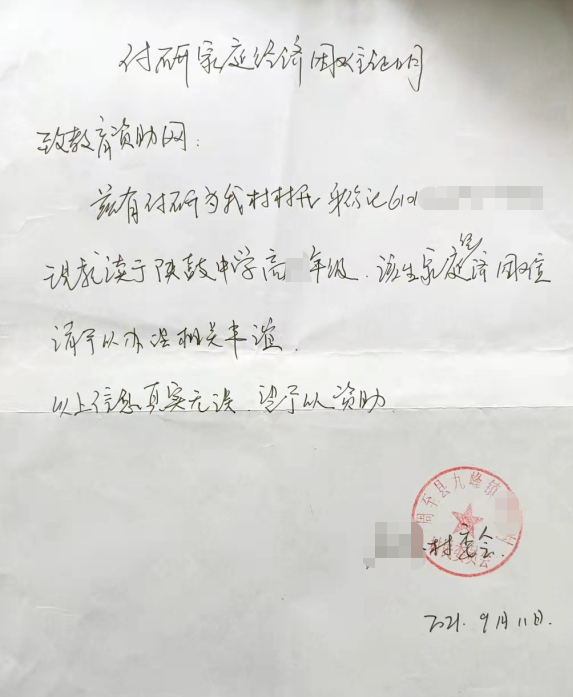 付研家庭经济困难证明
致教育资助网:
兹有付研为我村村民 身份证6101
现就读于陕鼓中学高 年级.该生家庭经济困难
请予以办理相关事宜.
以上信息真实无误.望予以资助
周至县九峰镇
村委会.
村民委员会
2021.9月11日.